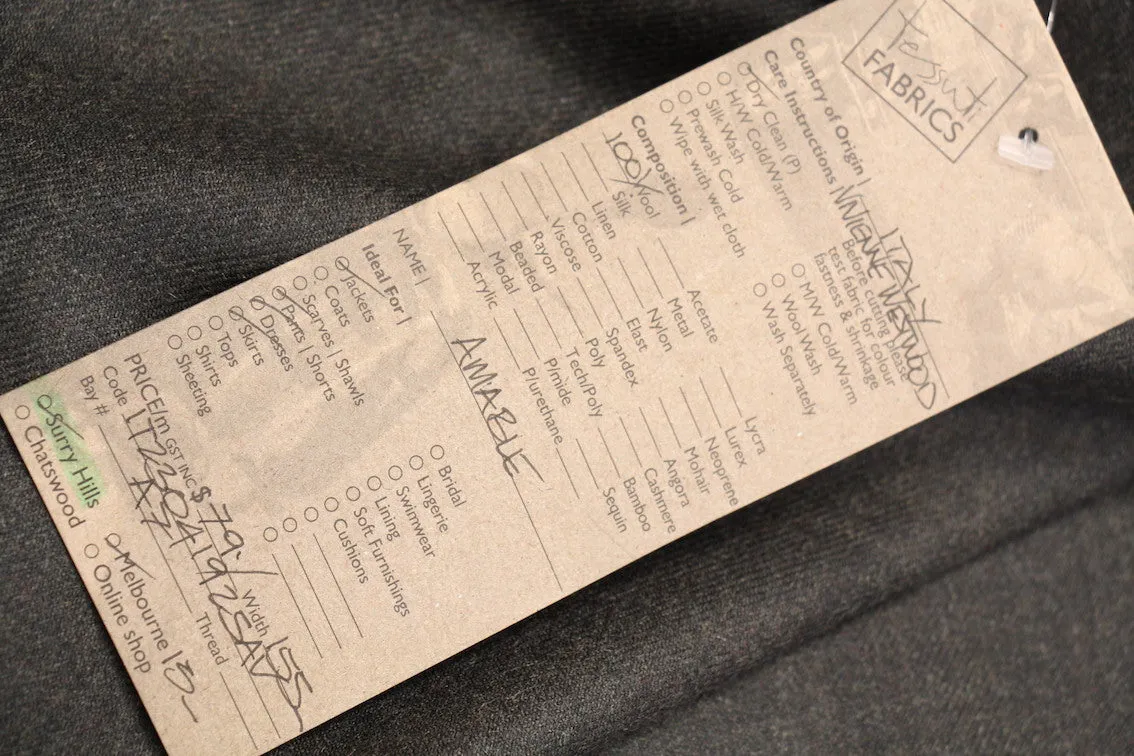 Tessuti
FABRICS
Country of Origin | ITALY
Care Instructions | VIVIENNE WESTWOOD
Dry Clean (P)
H/W Cold/Warm
Silk Wash
Prewash Cold
Wipe with wet cloth
Before cutting please
test fabric for colour
fastness & shrinkage
M/W Cold/Warm
Wool Wash
Wash Separately
Composition |
100% Wool
Silk
Linen
Cotton
Viscose
Rayon
Beaded
Modal
Acrylic
Acetate
Metal
Nylon
Elast
Spandex
Poly
Tech/Poly
P/mide
P/urethane
Lycra
Lurex
Neoprene
Mohair
Angora
Cashmere
Bamboo
Sequin
NAME | AMABLE
Ideal For |
Jackets
Coats
Scarves | Shawls
Pants | Shorts
Dresses
Skirts
Tops
Shirts
Sheeting
Bridal
Lingerie
Swimwear
Lining
Soft Furnishings
Cushions
PRICE/m GST INC $ 79.- Width 155
Code
Bay # A7 Thread
Surry Hills
Chatswood
Melbourne
Online shop